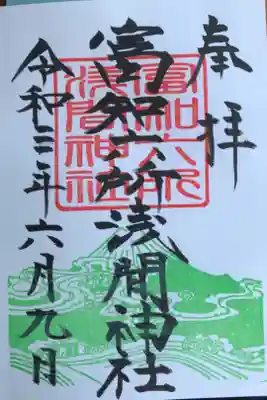 奉拝
富知六所浅間神社
令和三年六月九日
富知六所
浅間神社